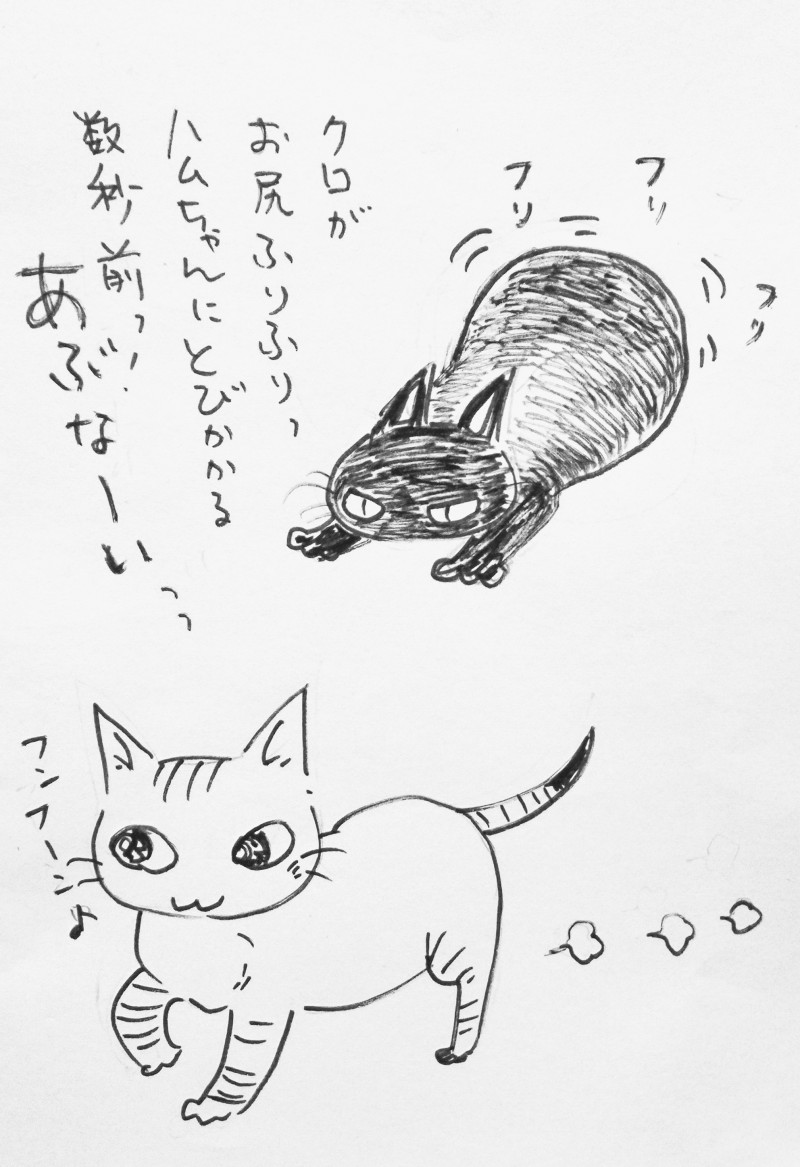 クロが
お尻ふりふりっ
ハムちゃんにとびかかる
数秒前っ!
あぶなーいっっ
フリ
フリ
フリ
フンフーン♪